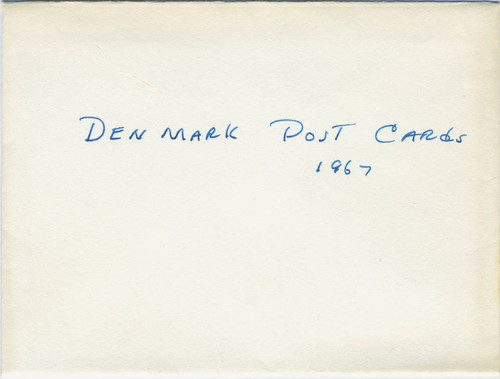 DENMARK POST CARDS
1967